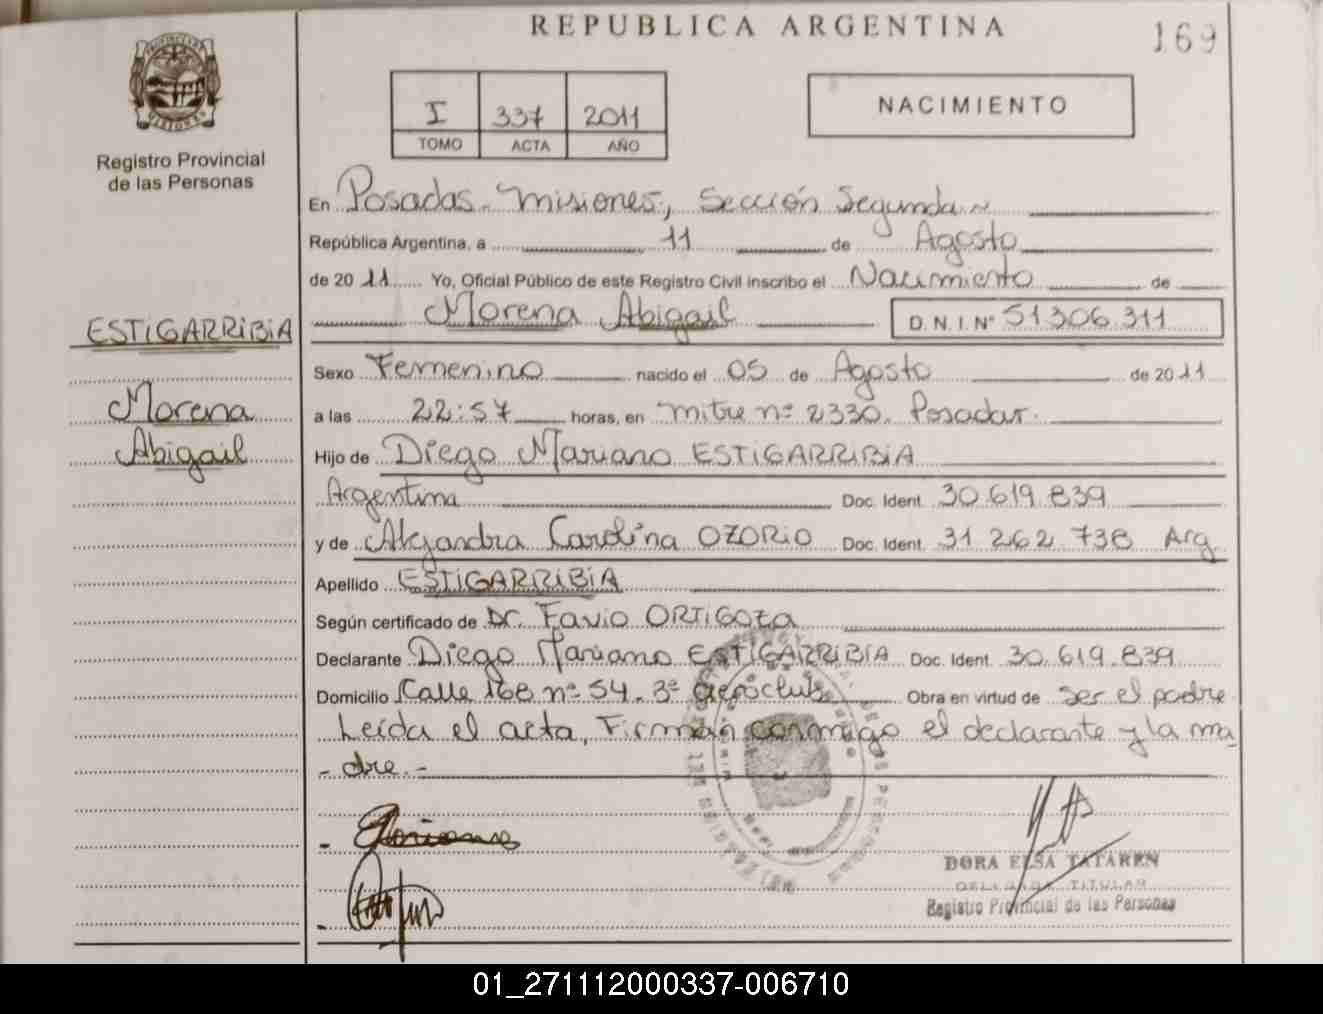 REPUBLICA ARGENTINA
169
Registro Provincial
de las Personas
I 337 2011
TOMO ACTA AÑO
NACIMIENTO
En Posadas - Misiones, Sección Segunda
República Argentina, a 11 de Agosto
de 2011 Yo, Oficial Público de este Registro Civil inscribo el Nacimiento de
Morena Abigail D.N.I. Nº 51306.311
ESTIGARRIBIA
Morena
Abigail
Sexo Femenino nacido el 05 de Agosto de 2011
a las 22:57 horas, en Mitre nº 2330. Posadas.
Hijo de Diego Mariano ESTIGARRIBIA
Argentina Doc. Ident. 30.619.839
y de Alejandra Carolina OZORIO Doc. Ident. 31 262 738 Arg.
Apellido ESTIGARRIBIA
Según certificado de Dr. Favio ORTIGOZA
Declarante Diego Mariano ESTIGARRIBIA Doc. Ident. 30.619.839
Domicilio Calle 168 nº 54 - 3º aeroclub Obra en virtud de ser el padre
Leída el acta, Firman conmigo el declarante y la ma
- dre.-
DORA ELSA TATAREN
DELEGADA TITULAR
Registro Provincial de las Personas
01_271112000337-006710